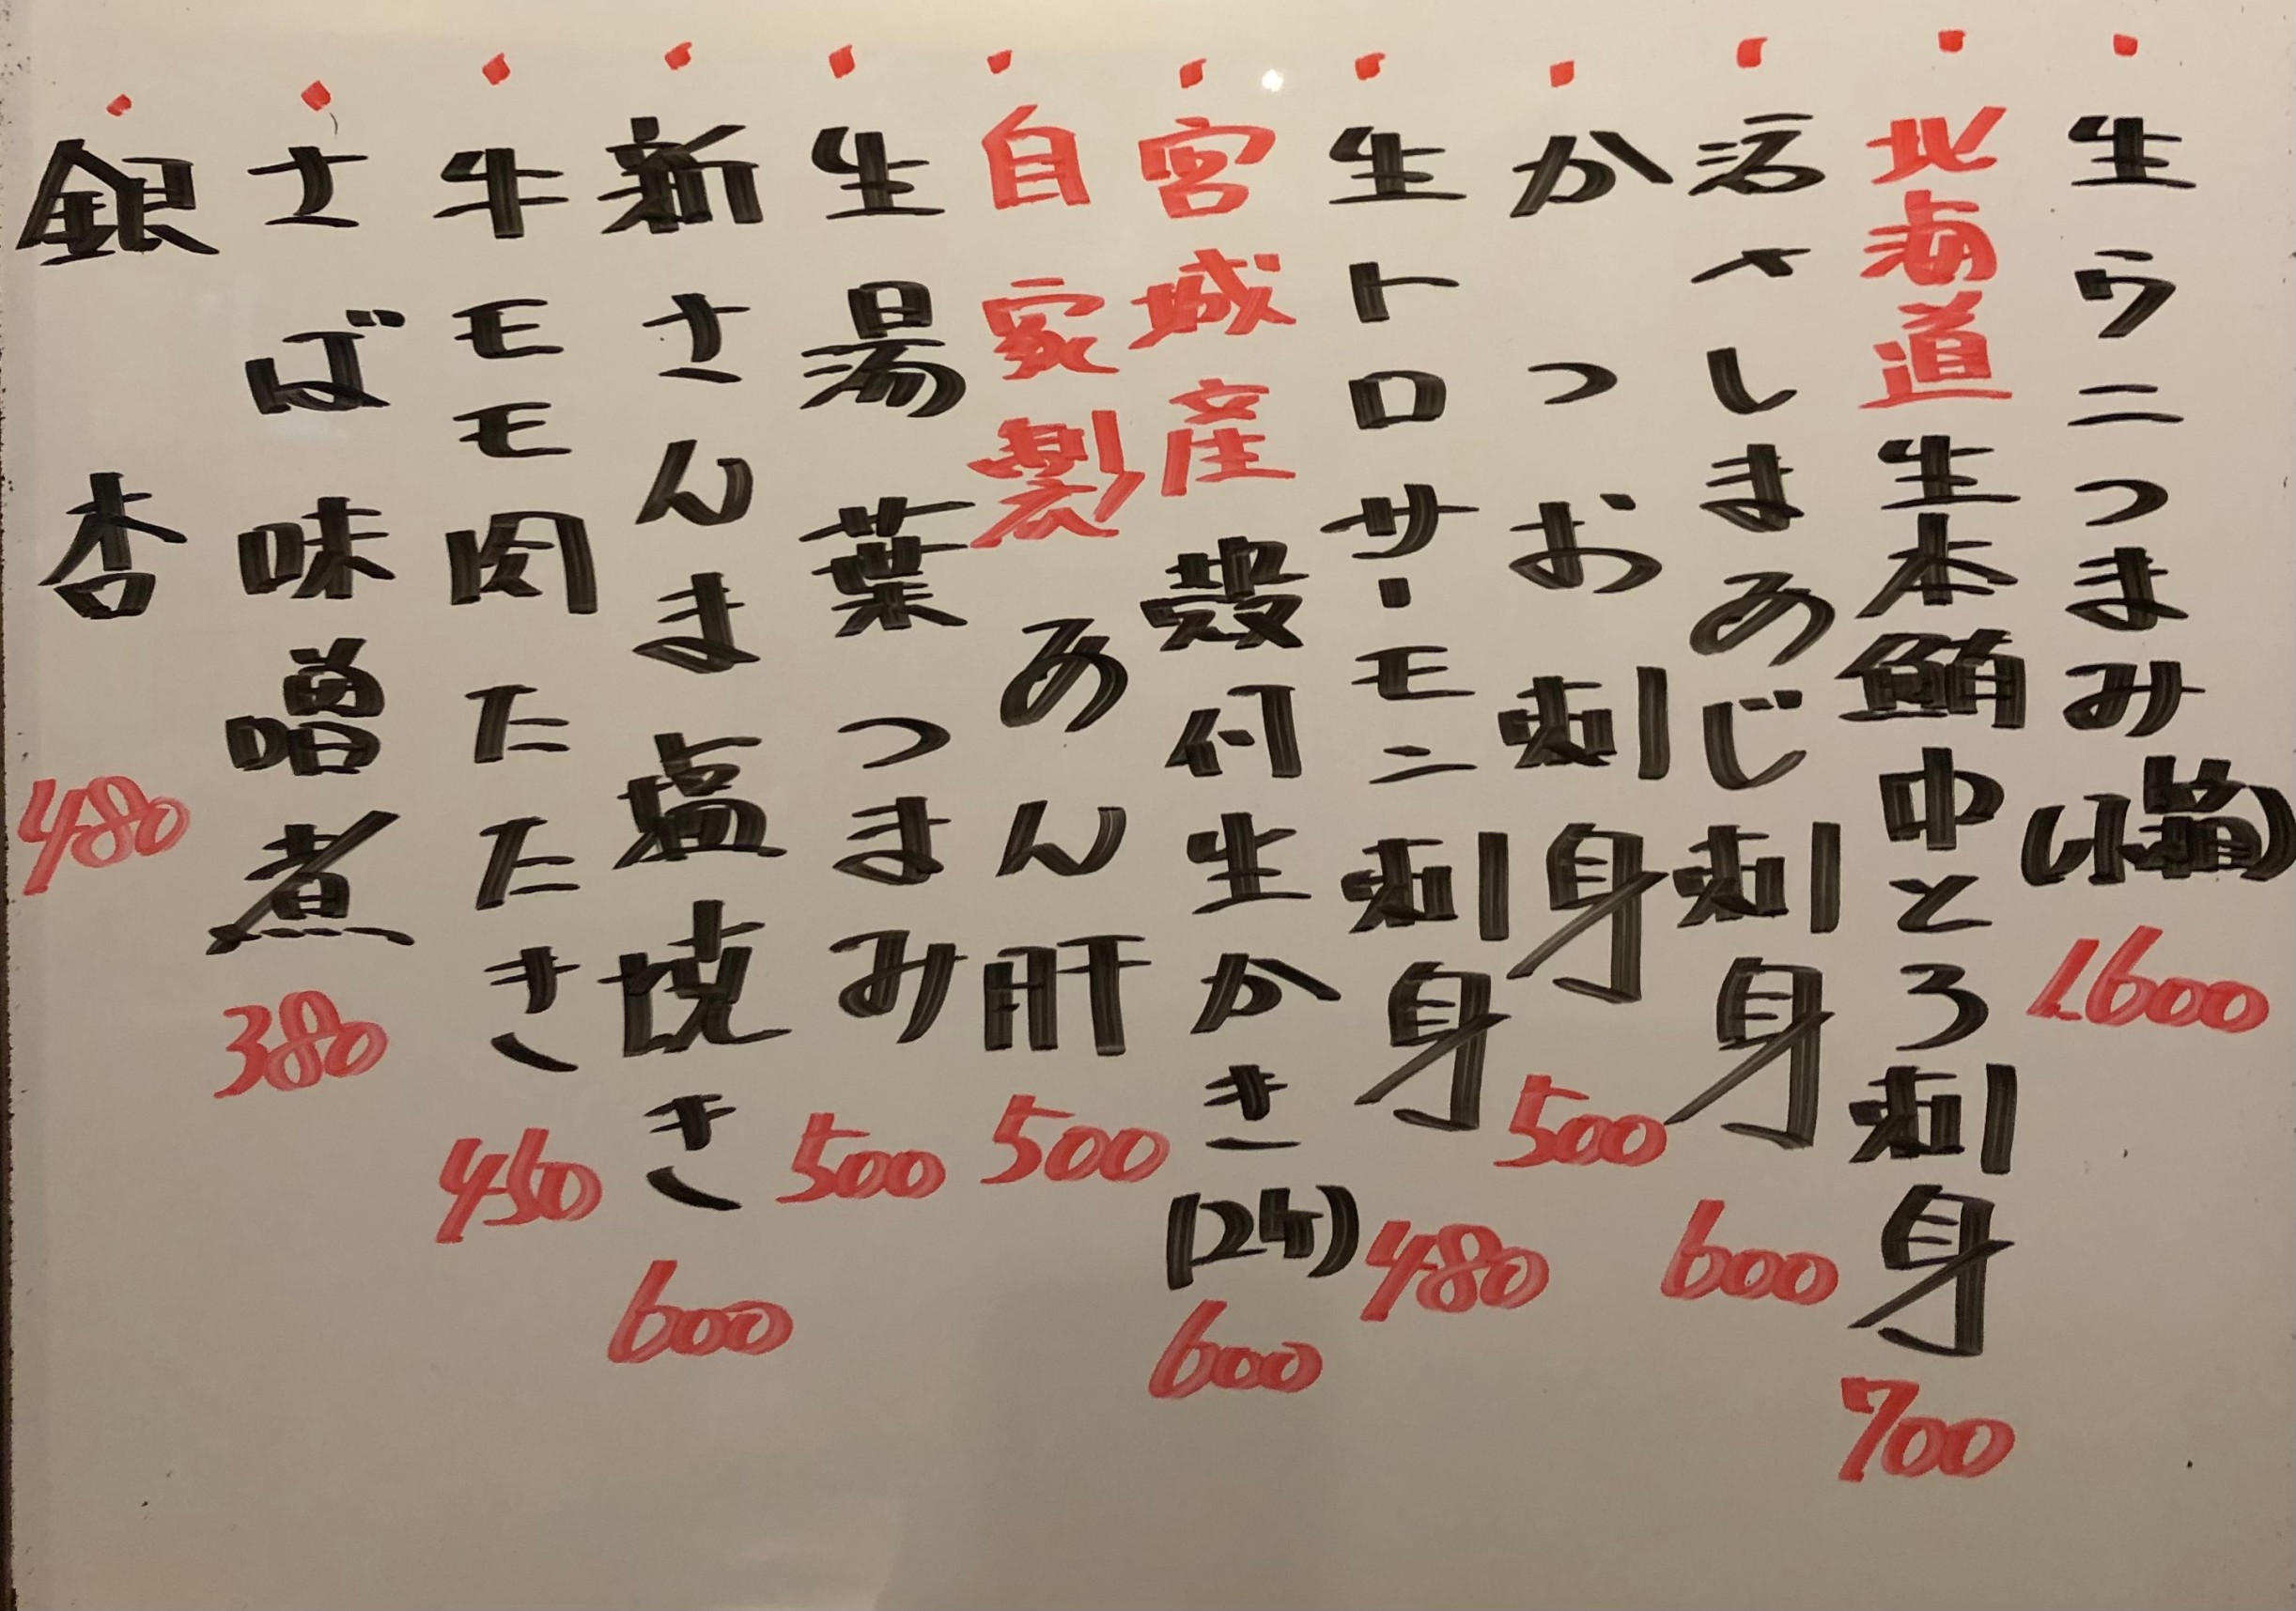 生ウニつまみ(小箱) 1600
北海道生本鮪中とろ刺身 700
活〆しまあじ刺身 600
かつお刺身 500
生トロサーモン刺身 480
宮城産殻付生かき(2ケ) 600
自家製あん肝 500
生湯葉つまみ 500
新さんま塩焼き 600
牛モモ肉たたき 450
さば味噌煮 380
銀杏 480